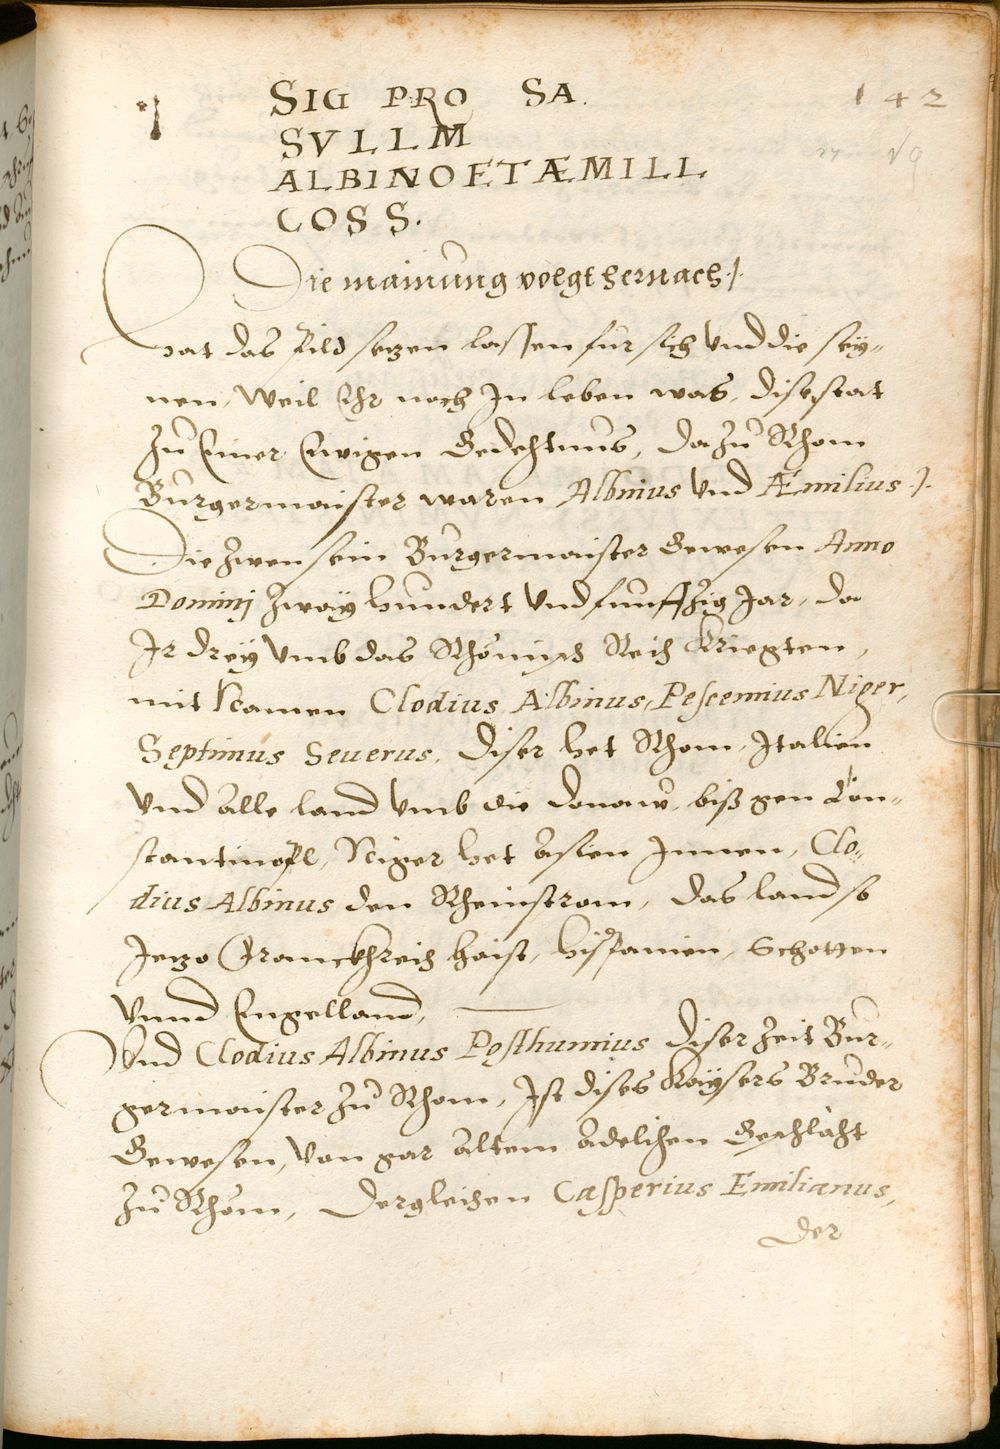 142
SIG PRO SA.
SVLLM
ALBINO ET ÆMILL
COSS.
Die mainung volgt hernach ./.
Hat das Pild sezen lassen fur sich vnd die sey„
nen, Weil Ehr noch In leben was, dises stat
Zu Einer Ewigen Gedechtnus, da zu Rhom
Burgermaister waren Albinus vnd Æmilius ./.
Die zwen sein Burgermaister Gewesen Anno
Dominj zway hundert vnd funffzig Jar, da
Ir drey vmb das Rhömisch Reich kriegten,
mit Namen Clodius Albinus, Pescennius Niger,
Septimus Seuerus, diser het Rhom, Italien
vnd alle land vmb die donaw, biß gen Con„
stantinopl, Niger het Asien Innen, Clo„
dius Albinus den Rheinstrom, das land so
Jezo Franckhreich haist, hispanien, Schotten
vnnd Engelland,
Vnd Clodius Albinus Posthumius diser Zeit Bur„
germaister zu Rhom, Ist dises Kaysers Bruder
Gewesen, von gar altem adelichen Geschlächt
zu Rhom, dergleichen Casperius Emilianus,
der